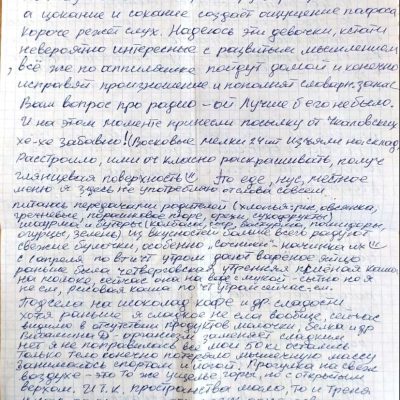 а цокание и сокание создаёт ощущение пафоса
короче режет слух. Надеюсь эти девочки, кстати
невероятно интересные с развитым мышлением
, всё же по аппиляшке пойдут домой и конечно
исправят произношение и пополнят словарн. запас
Вам вопрос про радио – ой Лучше б его не было.
И на этом моменте принесли посылку от Чкаловских
хе-хе забавно! (Восковые мелки 24 шт Изъяли на склад
Расстроило, ими от классно раскрашивать, получ
глянцевая поверхность
Это еде, нус, местное
меню я здесь не употребляю от слова совсем
питаюсь передачами родителей (хлопья: рис, овсянка,
гречневые, порошковое пюре, орехи, сухофрукты)
помидоры,
огурцы, зелень) из вкусностей больше всего радуют
свежие булочки, особенно "Сочники" – начинка их
с 1 апреля по вт и чт утром дают варёное яйцо
раньше была четверговская утренняя пшённая каша
на молоке, сейчас она на воде с мукой – сытно но я
не ем, рисовая каша по чт утрам сейчас – ем.
Подсела на шоколад, кофе и др сладости
хотя раньше я сладкое не ела вообще, сейчас
видимо в отсутствии продуктов молочки, белка и др
Витамина D – организм заменяет сладким
нет я не поправилась все мои бока остались
Только тело конечно потеряло мышечную массу
Занимаюсь спортом и йогой, Прогулка на свеж
воздухе – это то же
верхом. И т.к. пространства мало, то и Треня